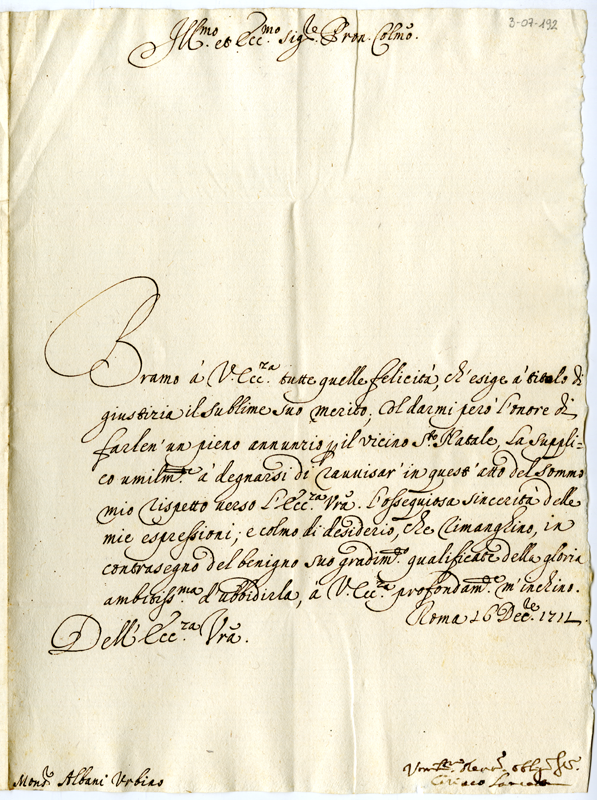 3-07-192
Ill.mo et Ecc.mo Sig.re Pron. Colmo.
Bramo á V. Ecc.za tutte quelle felicitá, ch'esige a' titolo di
giustizia il sublime suo merito; Col darmi peró l'onore di
farlen' un pieno annunzio p il vicino S.to Natale, La suppli=
co umilm.te á degnarsi di ravvisar' in quest' atto del sommo
mio rispetto verso l'Ecc.za Vrã. l'ossequiosa sincerità delle
mie espressioni; e colmo di desiderio, che rimanghino, in
contrasegno del benigno suo gradim.to qualificate della gloria
ambitiss.ma d'ubbidirla, á V. Ecc.za profondam.te m'inchino.
Roma 16 Dec.re 171
Dell' Ecc.za Vrã.
Mons.r Albani Urbino
Um.mo Serv.
Ciriaco